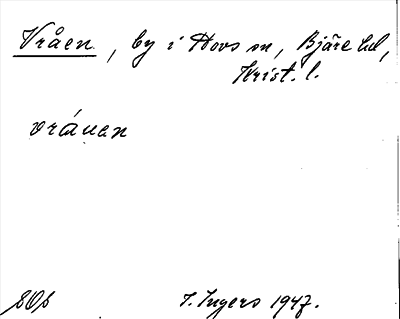 Vråen, by i Hovs sn, Bjäre hd,
Krist. l.
vråuen
I. Ingers 1947.